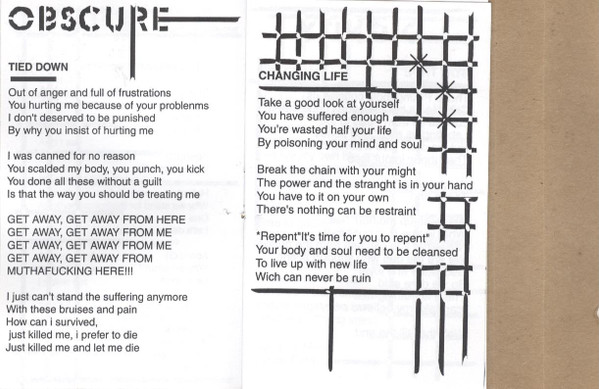 OBSCURE
TIED DOWN
Out of anger and full of frustrations
You hurting me because of your problenms
I don't deserved to be punished
By why you insist of hurting me
I was canned for no reason
You scalded my body, you punch, you kick
You done all these without a guilt
Is that the way you should be treating me
GET AWAY, GET AWAY FROM HERE
GET AWAY, GET AWAY FROM ME
GET AWAY, GET AWAY FROM ME
GET AWAY, GET AWAY FROM
MUTHAFUCKING HERE!!!
I just can't stand the suffering anymore
With these bruises and pain
How can i survived,
just killed me, i prefer to die
Just killed me and let me die
CHANGING LIFE
Take a good look at yourself
You have suffered enough
You're wasted half your life
By poisoning your mind and soul
Break the chain with your might
The power and the stranght is in your hand
You have to it on your own
There's nothing can be restraint
"Repent"It's time for you to repent"
Your body and soul need to be cleansed
To live up with new life
Wich can never be ruin